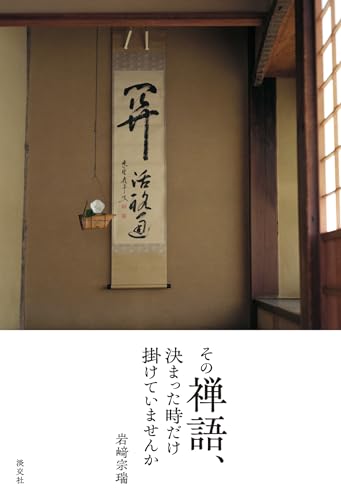 関
活路通
その禅語、
決まった時だけ
掛けていませんか
岩﨑宗瑞
淡交社